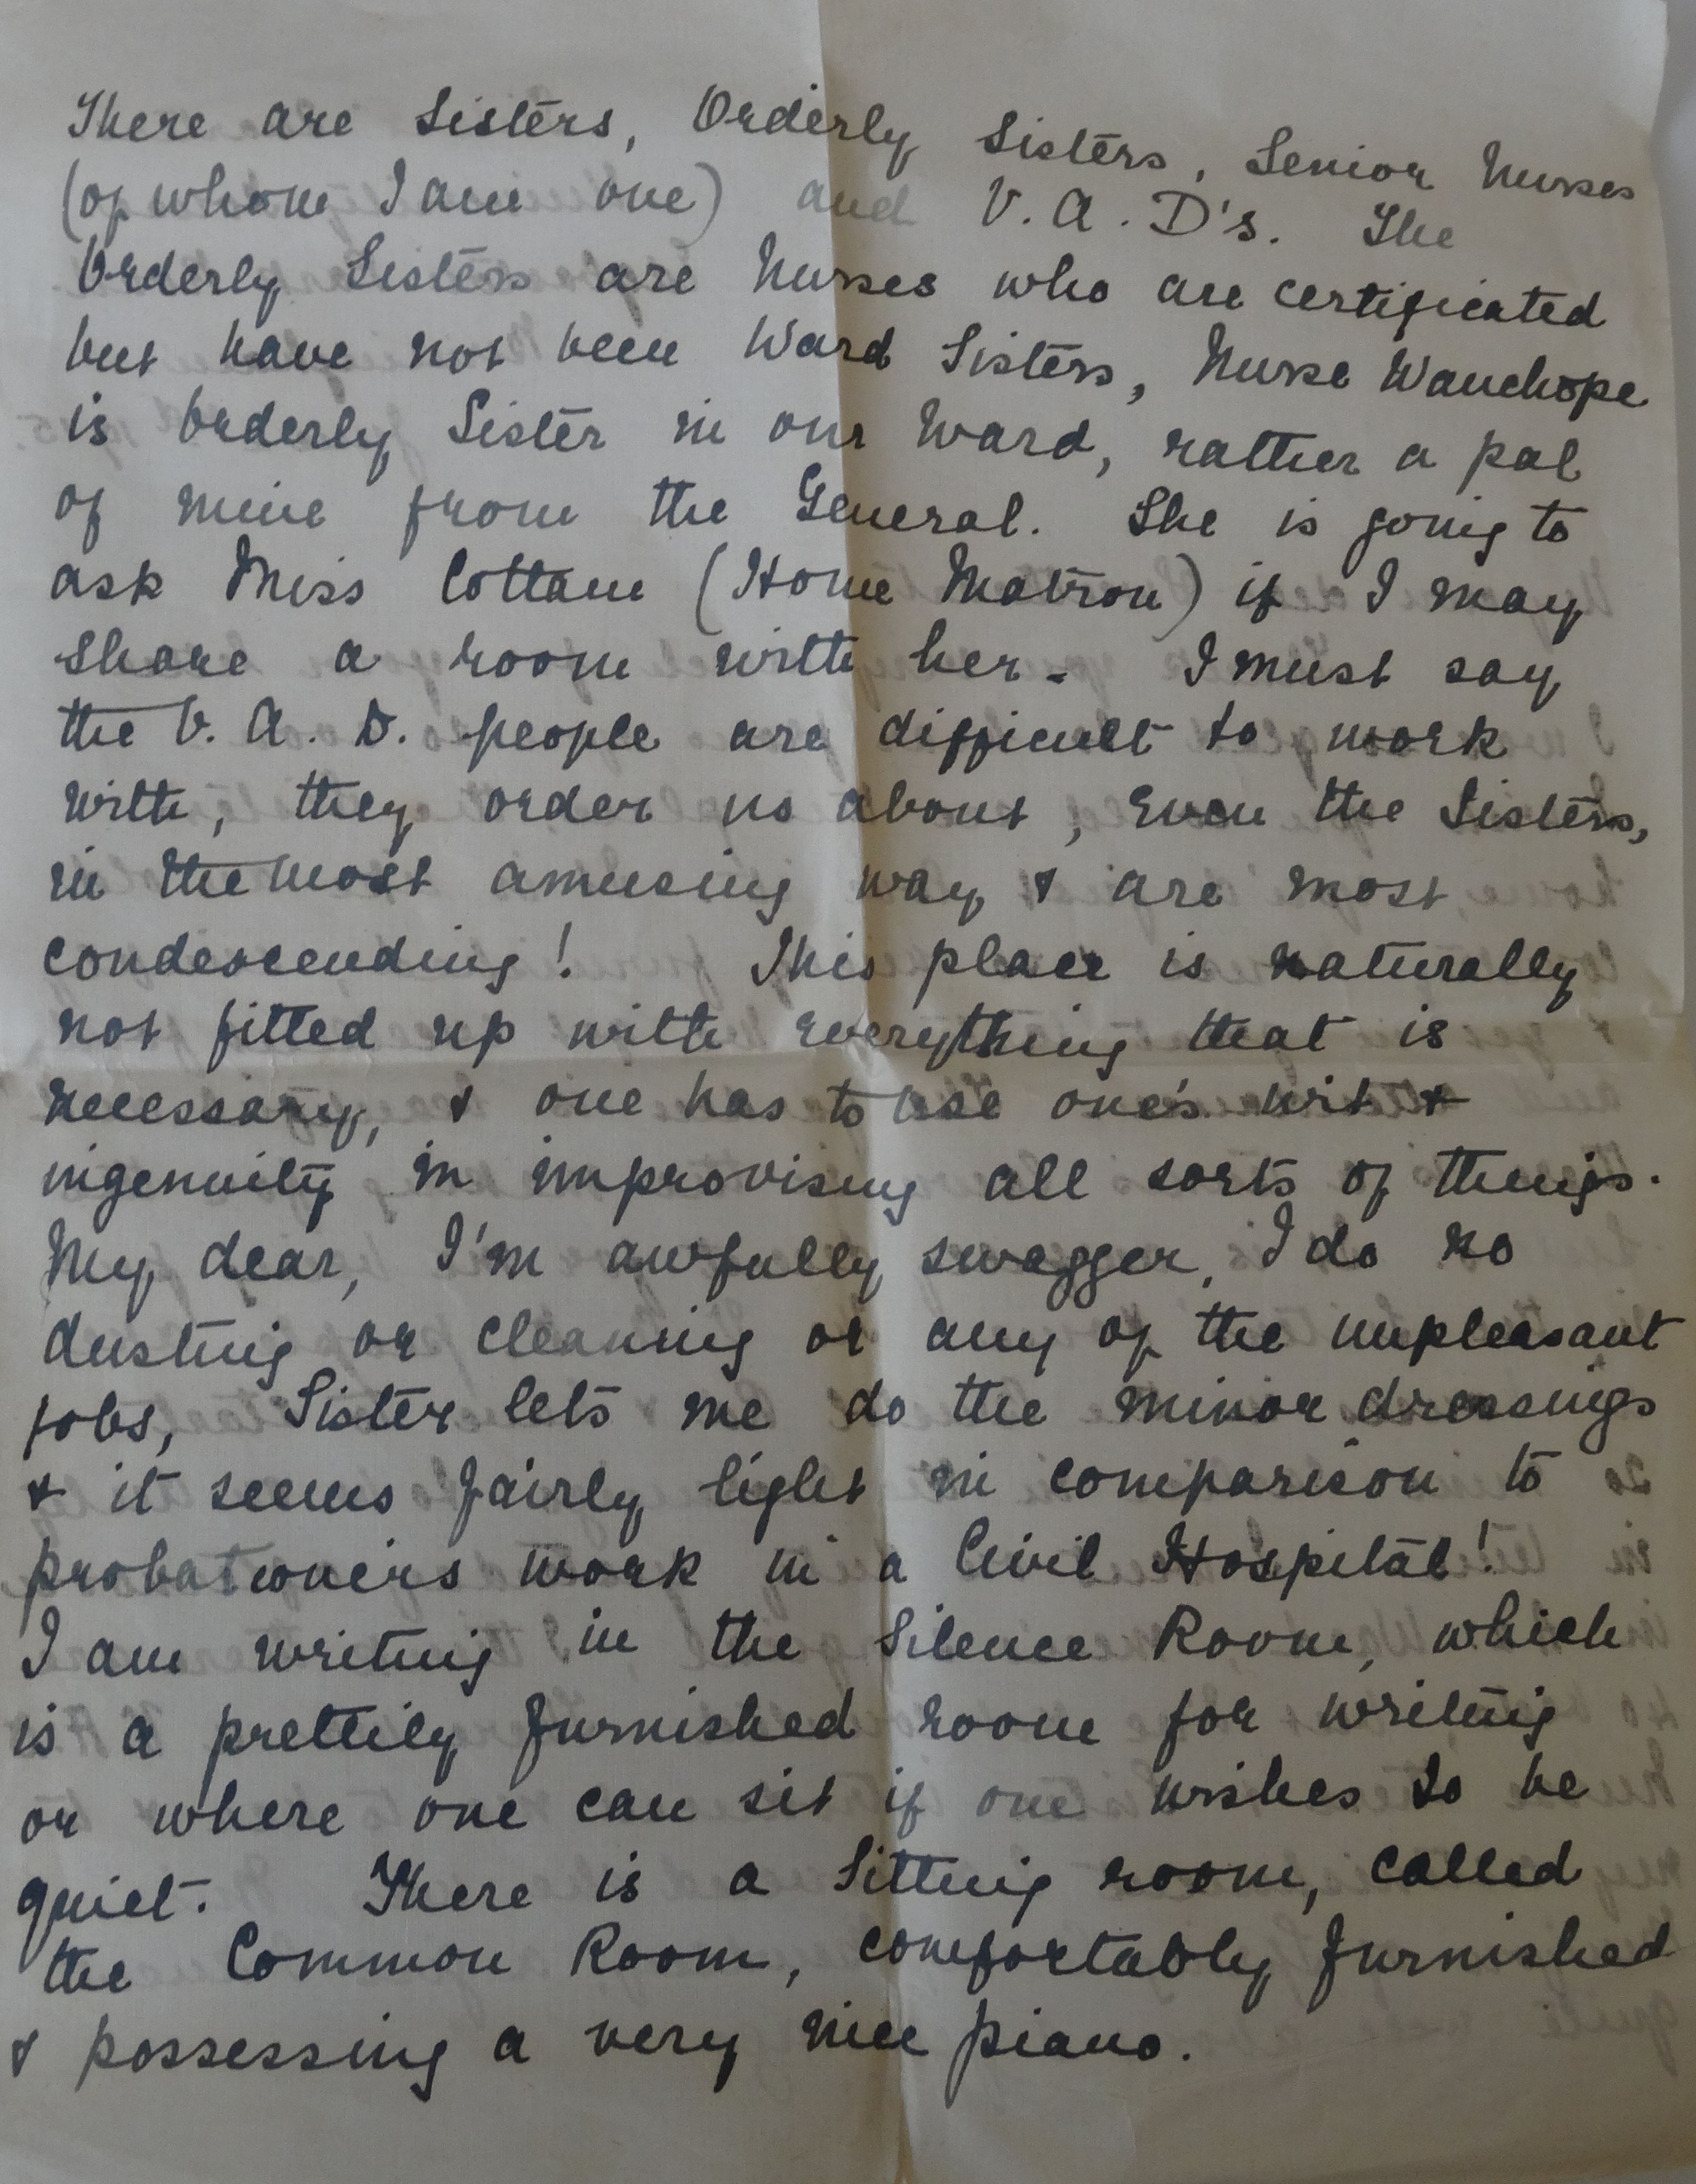 There are Sisters, Orderly Sisters, Senior Nurses
(of whom I am one) and V.A.D's. The
Orderly Sisters are Nurses who are certificated
but have not been Ward Sisters, Nurse Wauchope
is Orderly Sister in our Ward, rather a pal
of mine from the General. She is going to
ask Miss Cottam (Home Matron) if I may
share a room with her. I must say
the V.A.D. people are difficult to work
with, they order us about, even the Sisters,
in the most amusing way & are most
condescending! This place is naturally
not fitted up with everything that is
necessary, & one has to use one's wit &
ingenuity in improvising all sorts of things.
My dear, I'm awfully swagger, I do no
dusting or cleaning or any of the unpleasant
jobs, Sister lets me do the minor dressings
& it seems fairly light in comparison to
probationers work in a Civil Hospital!
I am writing in the Silence Room, which
is a prettily furnished room for writing
or where one can sit if one wishes to be
quiet. There is a Sitting room, called
the Common Room, comfortably furnished
& possessing a very nice piano.